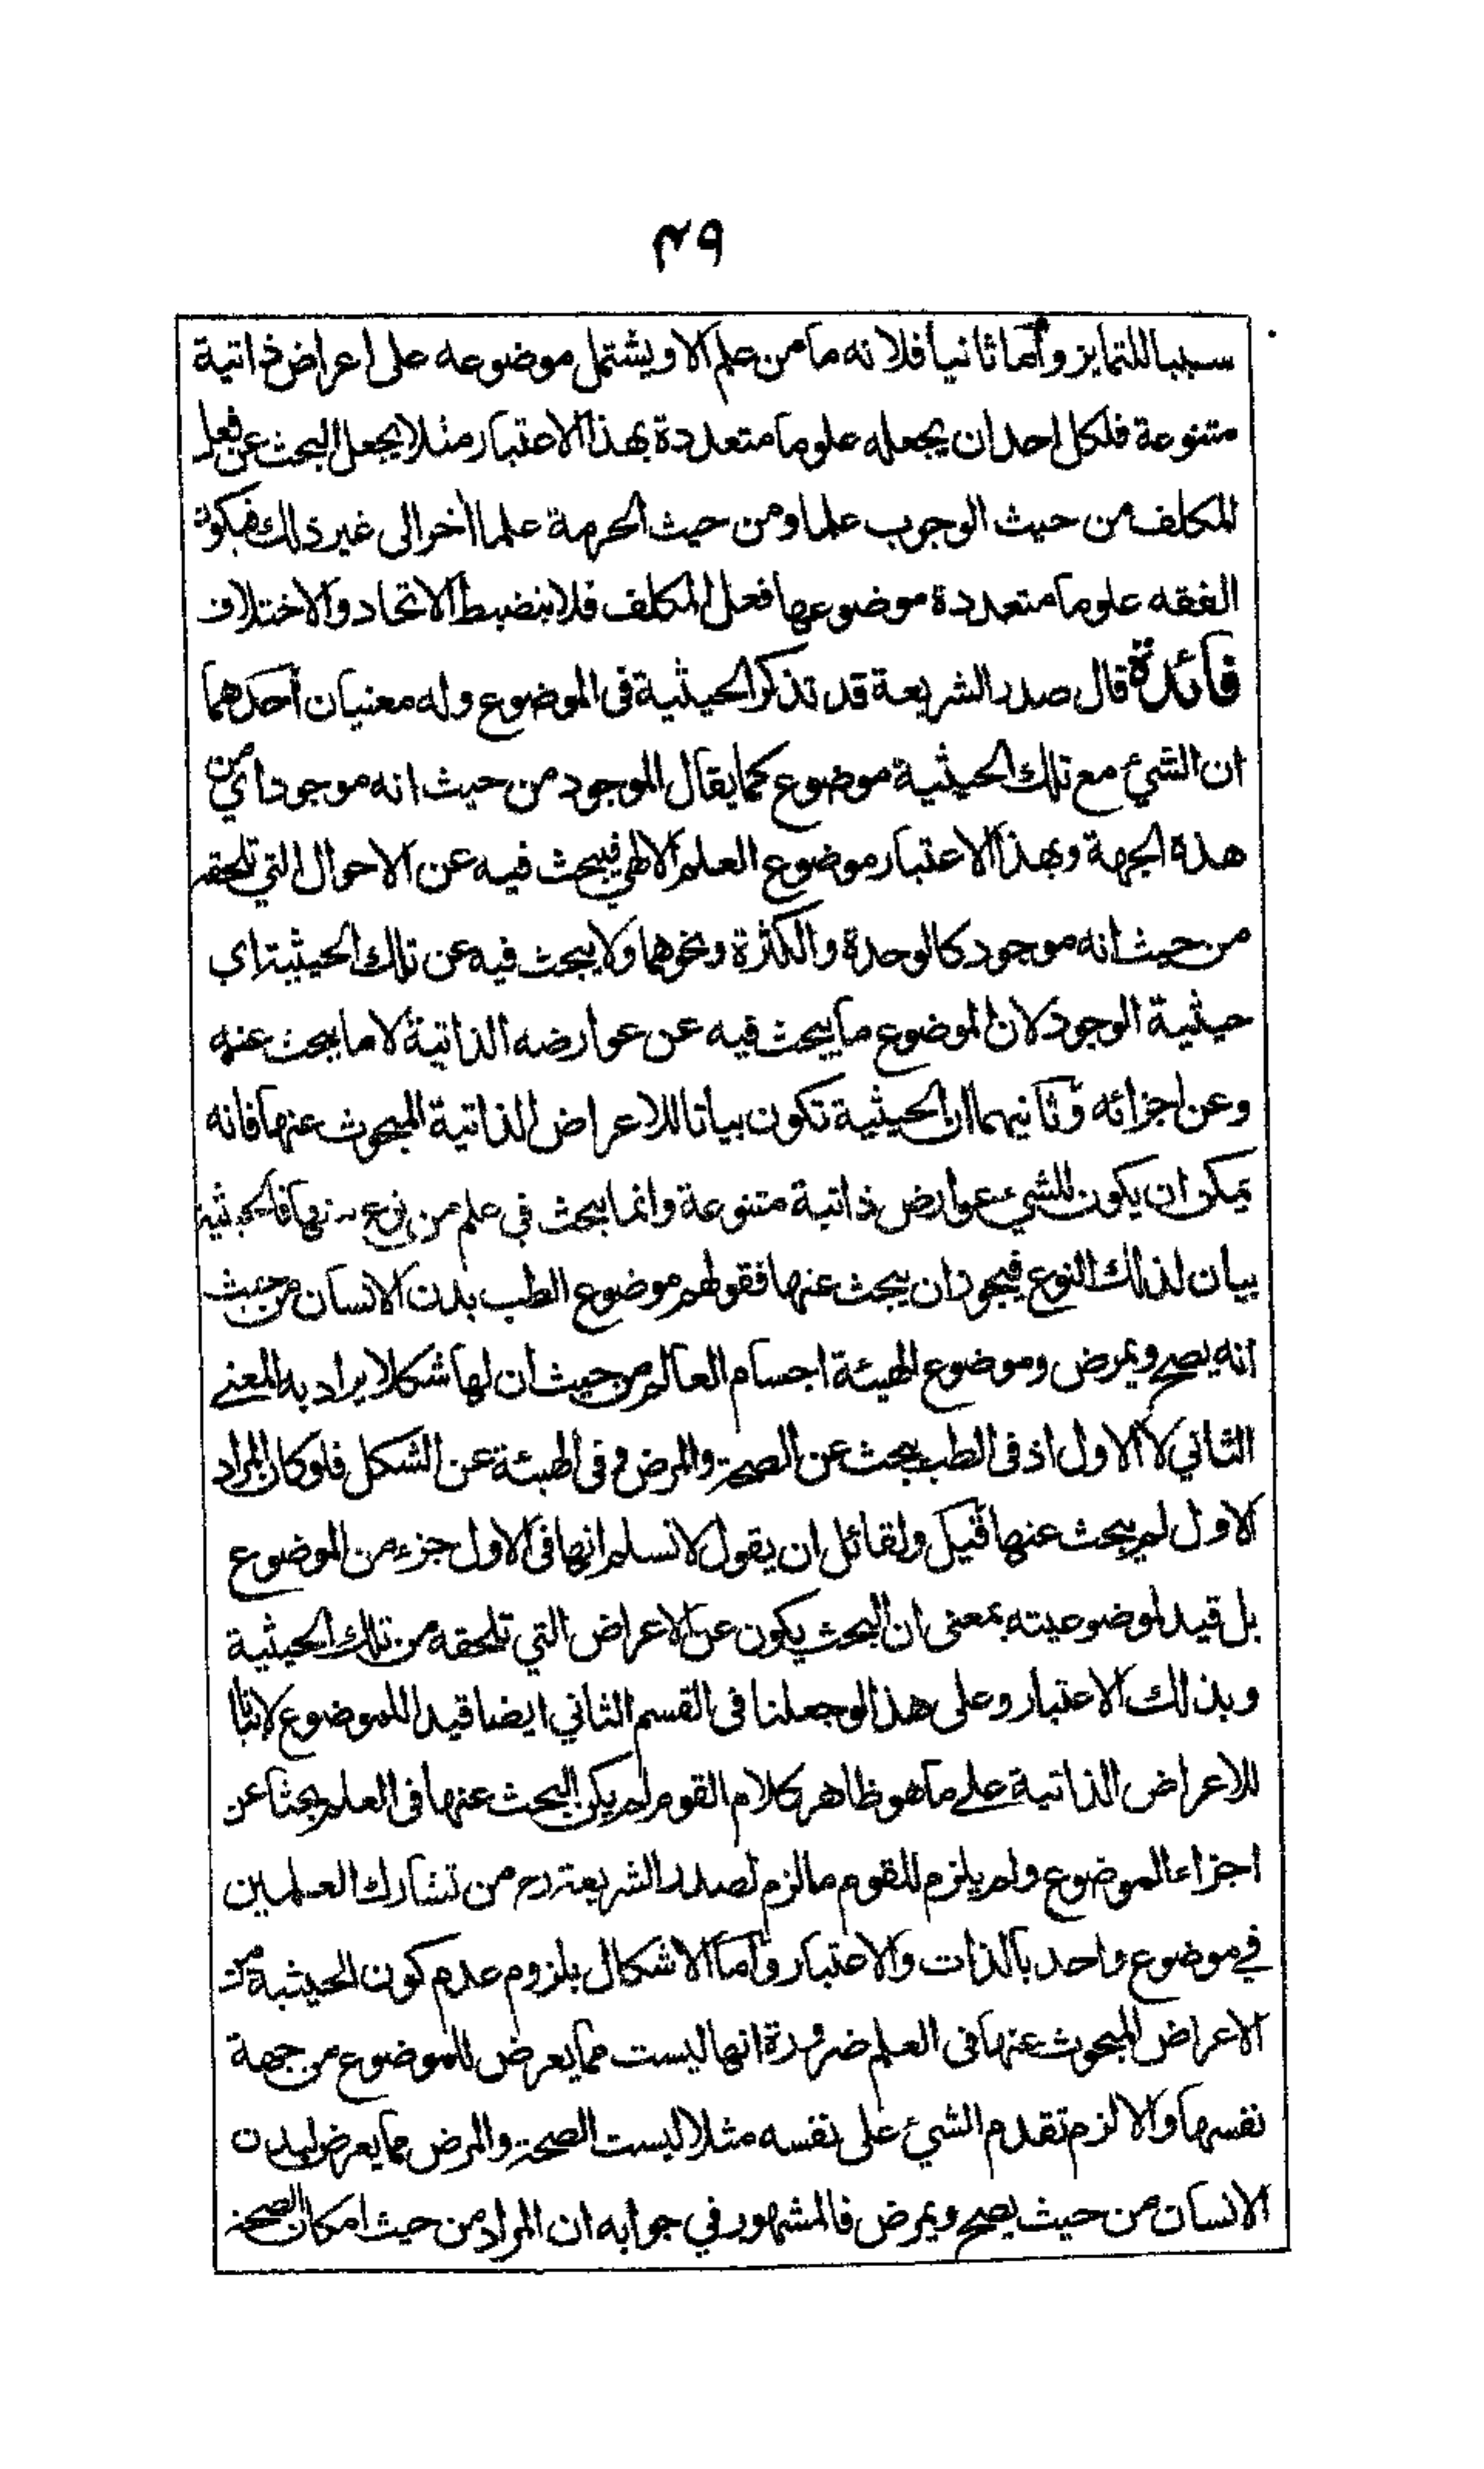 ٣٩
سببا للتمايز وأما ثانيا فلانه ما من علم الا ويشتمل موضوعه على اعراض ذاتية
متنوعة فلكل احد ان يجعله علوما متعددة بهذا الاعتبار مثلا يجعل البحث عن فعل
المكلف من حيث الوجوب علما ومن حيث الحرمة علما أخر الى غير ذلك فيكون
الفقه علوما متعددة موضوعها فعل المكلف فلا ينضبط الاتحاد والاختلاف
فائدة قال صدر الشريعة قد تذكر الحيثية فى الموضوع وله معنيان أحدهما
ان الشيء مع تلك الحيثية موضوع كما يقال الموجود من حيث انه موجود اي من
هذه الجهة وبهذا الاعتبار موضوع العلم الالهي فيبحث فيه عن الاحوال التي تلحقه
من حيث انه موجود كالوحدة والكثرة ونحوهما ولا يبحث فيه عن تلك الحيثية اي
حيثية الوجود لان الموضوع ما يبحث فيه عن عوارضه الذاتية لا ما يبحث عنه
وعن اجزائه وثانيهما ان الحيثية تكون بيانا للاعراض الذاتية المبحوث عنها فانه
يمكن ان يكون للشيء عوارض ذاتية متنوعة وانما يبحث في علم من نوع منها فالحيثية
بيان لذلك النوع فيجوز ان يبحث عنها فقولهم موضوع الطب بدن الانسان من حيث
انه يصح ويمرض وموضوع الهيئة اجسام العالم من حيث ان لها شكلا يراد به المعنى
الثاني لا الاول اذ فى الطب يبحث عن الصحة والمرض و فى الهيئة عن الشكل فلو كان المراد
الاول لم يبحث عنها قيل ولقائل ان يقول لا نسلم انها فى الاول جزء من الموضوع
بل قيد لموضوعيته بمعنى ان البحث يكون عن الاعراض التي تلحقه من تلك الحيثية
وبذلك الاعتبار وعلى هذا لو جعلنا فى القسم الثاني ايضا قيدا للموضوع لا بيانا
للاعراض الذاتية على ما هو ظاهر كلام القوم لم يكن البحث عنها فى العلم بحثا عن
اجزاء الموضوع ولم يلزم للقوم ما لزم لصدر الشريعة رح من تشارك العلمين
في موضوع واحد بالذات والاعتبار وأما الاشكال بلزوم عدم كون الحيثية من
الاعراض المبحوث عنها فى العلم ضرورة انها ليست مما يعرض للموضوع من جهة
نفسها والا لزم تقدم الشيء على نفسه مثلا ليست الصحة والمرض مما يعرض لبدن
الانسان من حيث يصح ويمرض فالمشهور في جوابه ان المراد من حيث امكان الصحة